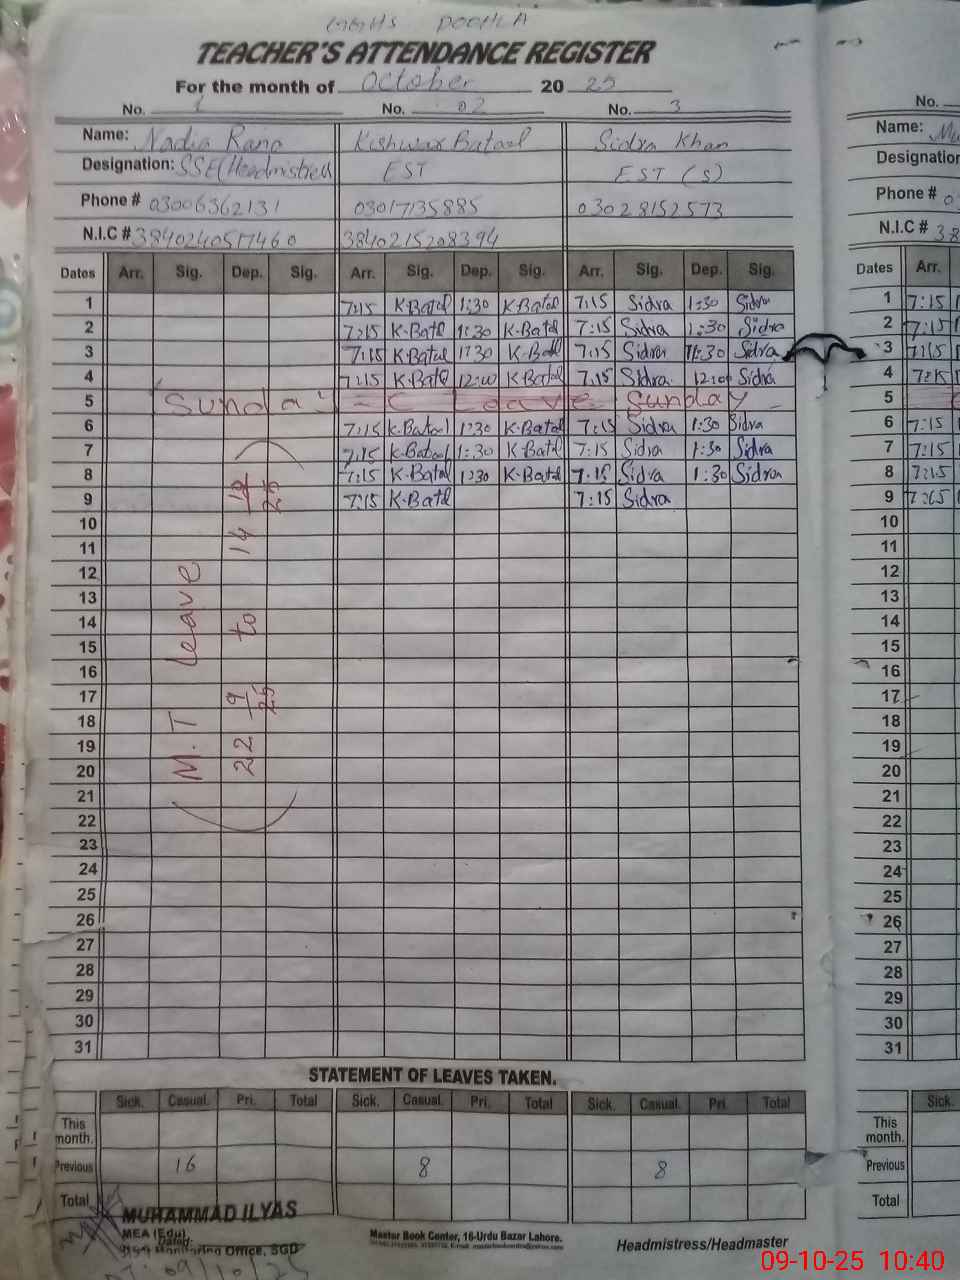 GGHS DOCHLA
TEACHER'S ATTENDANCE REGISTER
For the month of October 20 25
No. 1 No. 02 No. 3 No.
Name: Nadia Rana Kishwar Batool Sidra Khan Name:
Designation: SSE (Headmistress EST EST (S) Designation
Phone # 03006362131 03017135885 03028152573 Phone # 0
N.I.C # 3840240517460 3840215208394 N.I.C # 38
Dates Arr. Sig. Dep. Sig. Arr. Sig. Dep. Sig. Arr. Sig. Dep. Sig. Dates Arr.
1 7:15 K-Batol 1:30 K-Batol 7:15 Sidra 1:30 Sidra 1 7:15
2 7:15 K-Batl 1:30 K-Batol 7:15 Sidra 1:30 Sidra 2 7:15
3 7:15 K-Batul 1:30 K-Batl 7:15 Sidra 1:30 Sidra 3 7:15
4 7:15 K-Batl 12:00 K-Batol 7:15 Sidra 12:00 Sidra 4 7:15
5 Sunday Leave Sunday 5
6 7:15 K-Batool 1:30 K-Batol 7:15 Sidra 1:30 Sidra 6 7:15
7 7:15 K-Batool 1:30 K-Batol 7:15 Sidra 1:30 Sidra 7 7:15
8 7:15 K-Batol 1:30 K-Batol 7:15 Sidra 1:30 Sidra 8 7:15
9 7:15 K-Batl 7:15 Sidra 9 7:15
10 10
11 11
12 12
13 13
14 14
15 15
16 16
17 17
18 18
19 19
20 20
21 21
22 22
23 23
24 24
25 25
26 26
27 27
28 28
29 29
30 30
31 31
M.T Leave
22 9/25 to 14 12/25
STATEMENT OF LEAVES TAKEN.
Sick. Casual. Pri. Total Sick. Casual. Pri. Total Sick. Casual. Pri. Total Sick.
This month. This month.
Previous 16 8 8 Previous
Total Total
MUHAMMAD ILYAS
MEA (Edu)
Dated:
Monitoring Office, SGD
DT: 09/10/25
Master Book Center, 16-Urdu Bazar Lahore.
Headmistress/Headmaster
09-10-25 10:40